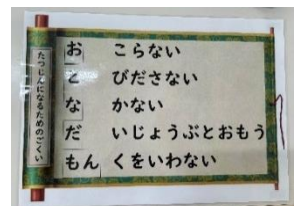 たつじんになるためのごくい
お こらない
と びださない
な かない
だ いじょうぶとおもう
もん くをいわない